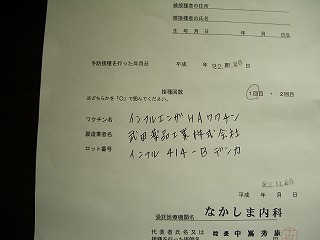 被接種者の住所
被接種者の氏名
生年月日 年 月 日生
予防接種を行った年月日 平成 年 22.11.20 日
接種回数
※どちらかを「○」で囲んでください。 1回目・2回目
ワクチン名 インフルエンザHAワクチン
製造業者名 武田薬品工業株式会社
ロット番号 インフル 414-B デンカ
平成 年 月 日
22.11.20
受託医療機関名 なかしま内科
代表者氏名又は 院長 中嶋秀
接種を行った医師名